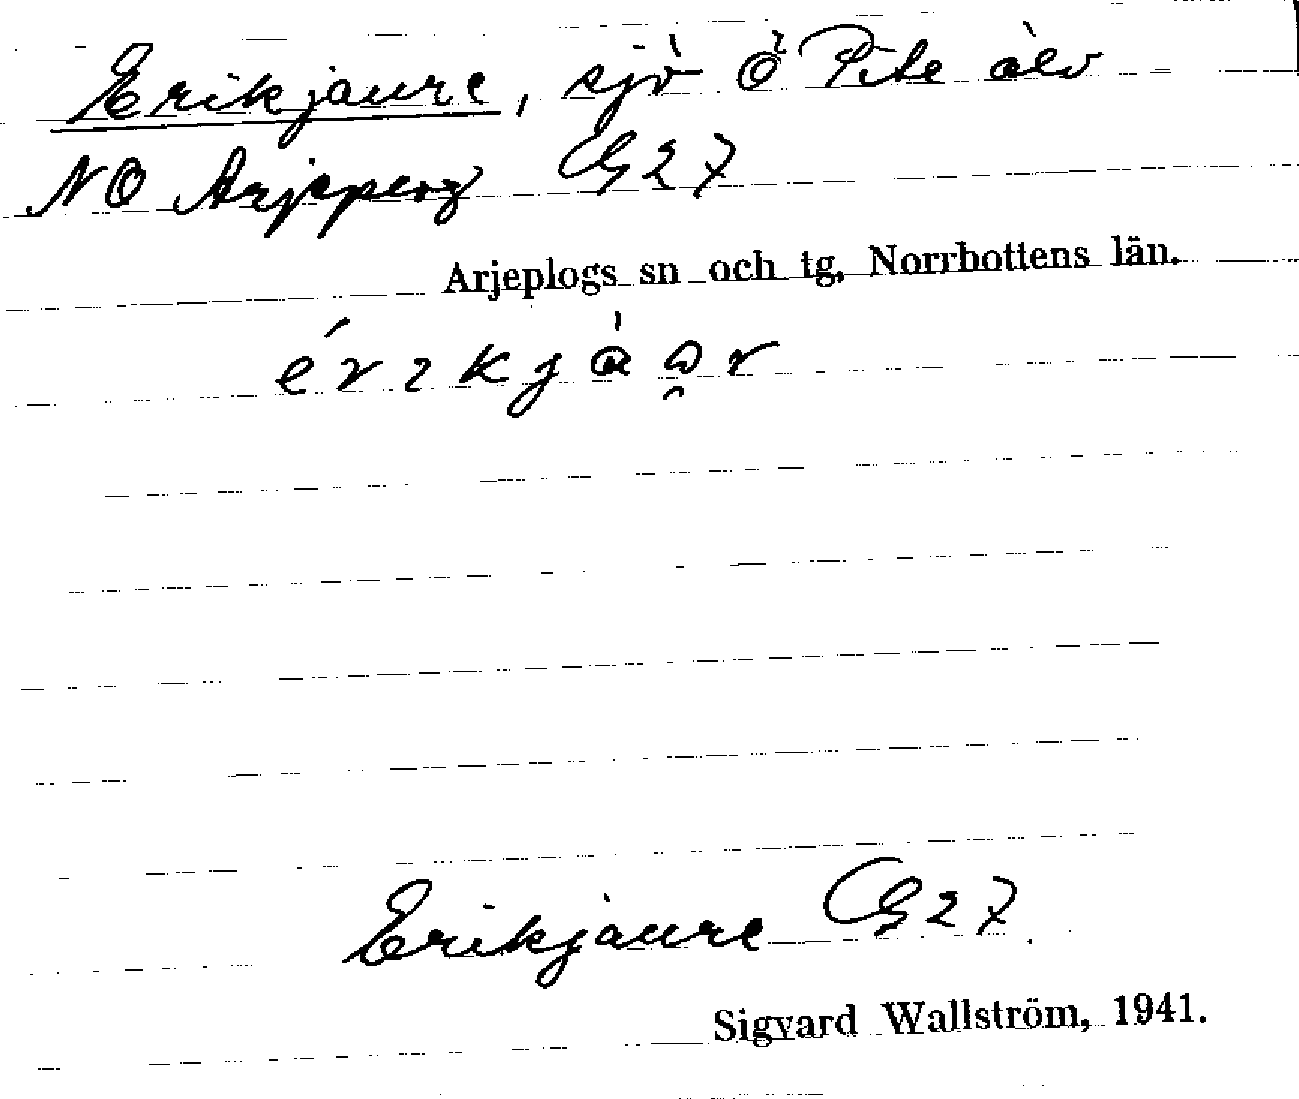 Erikjaure, sjö Ö Pite älv
NO Arjepperg G27
Arjeplogs sn och tg, Norrbottens län.
Erikjaure G27
Sigvard Wallström, 1941.